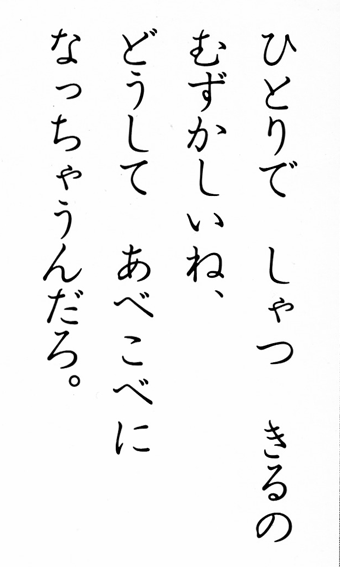 ひとりで　しゃつ　きるの
むずかしいね、
どうして　あべこべに
なっちゃうんだろ。